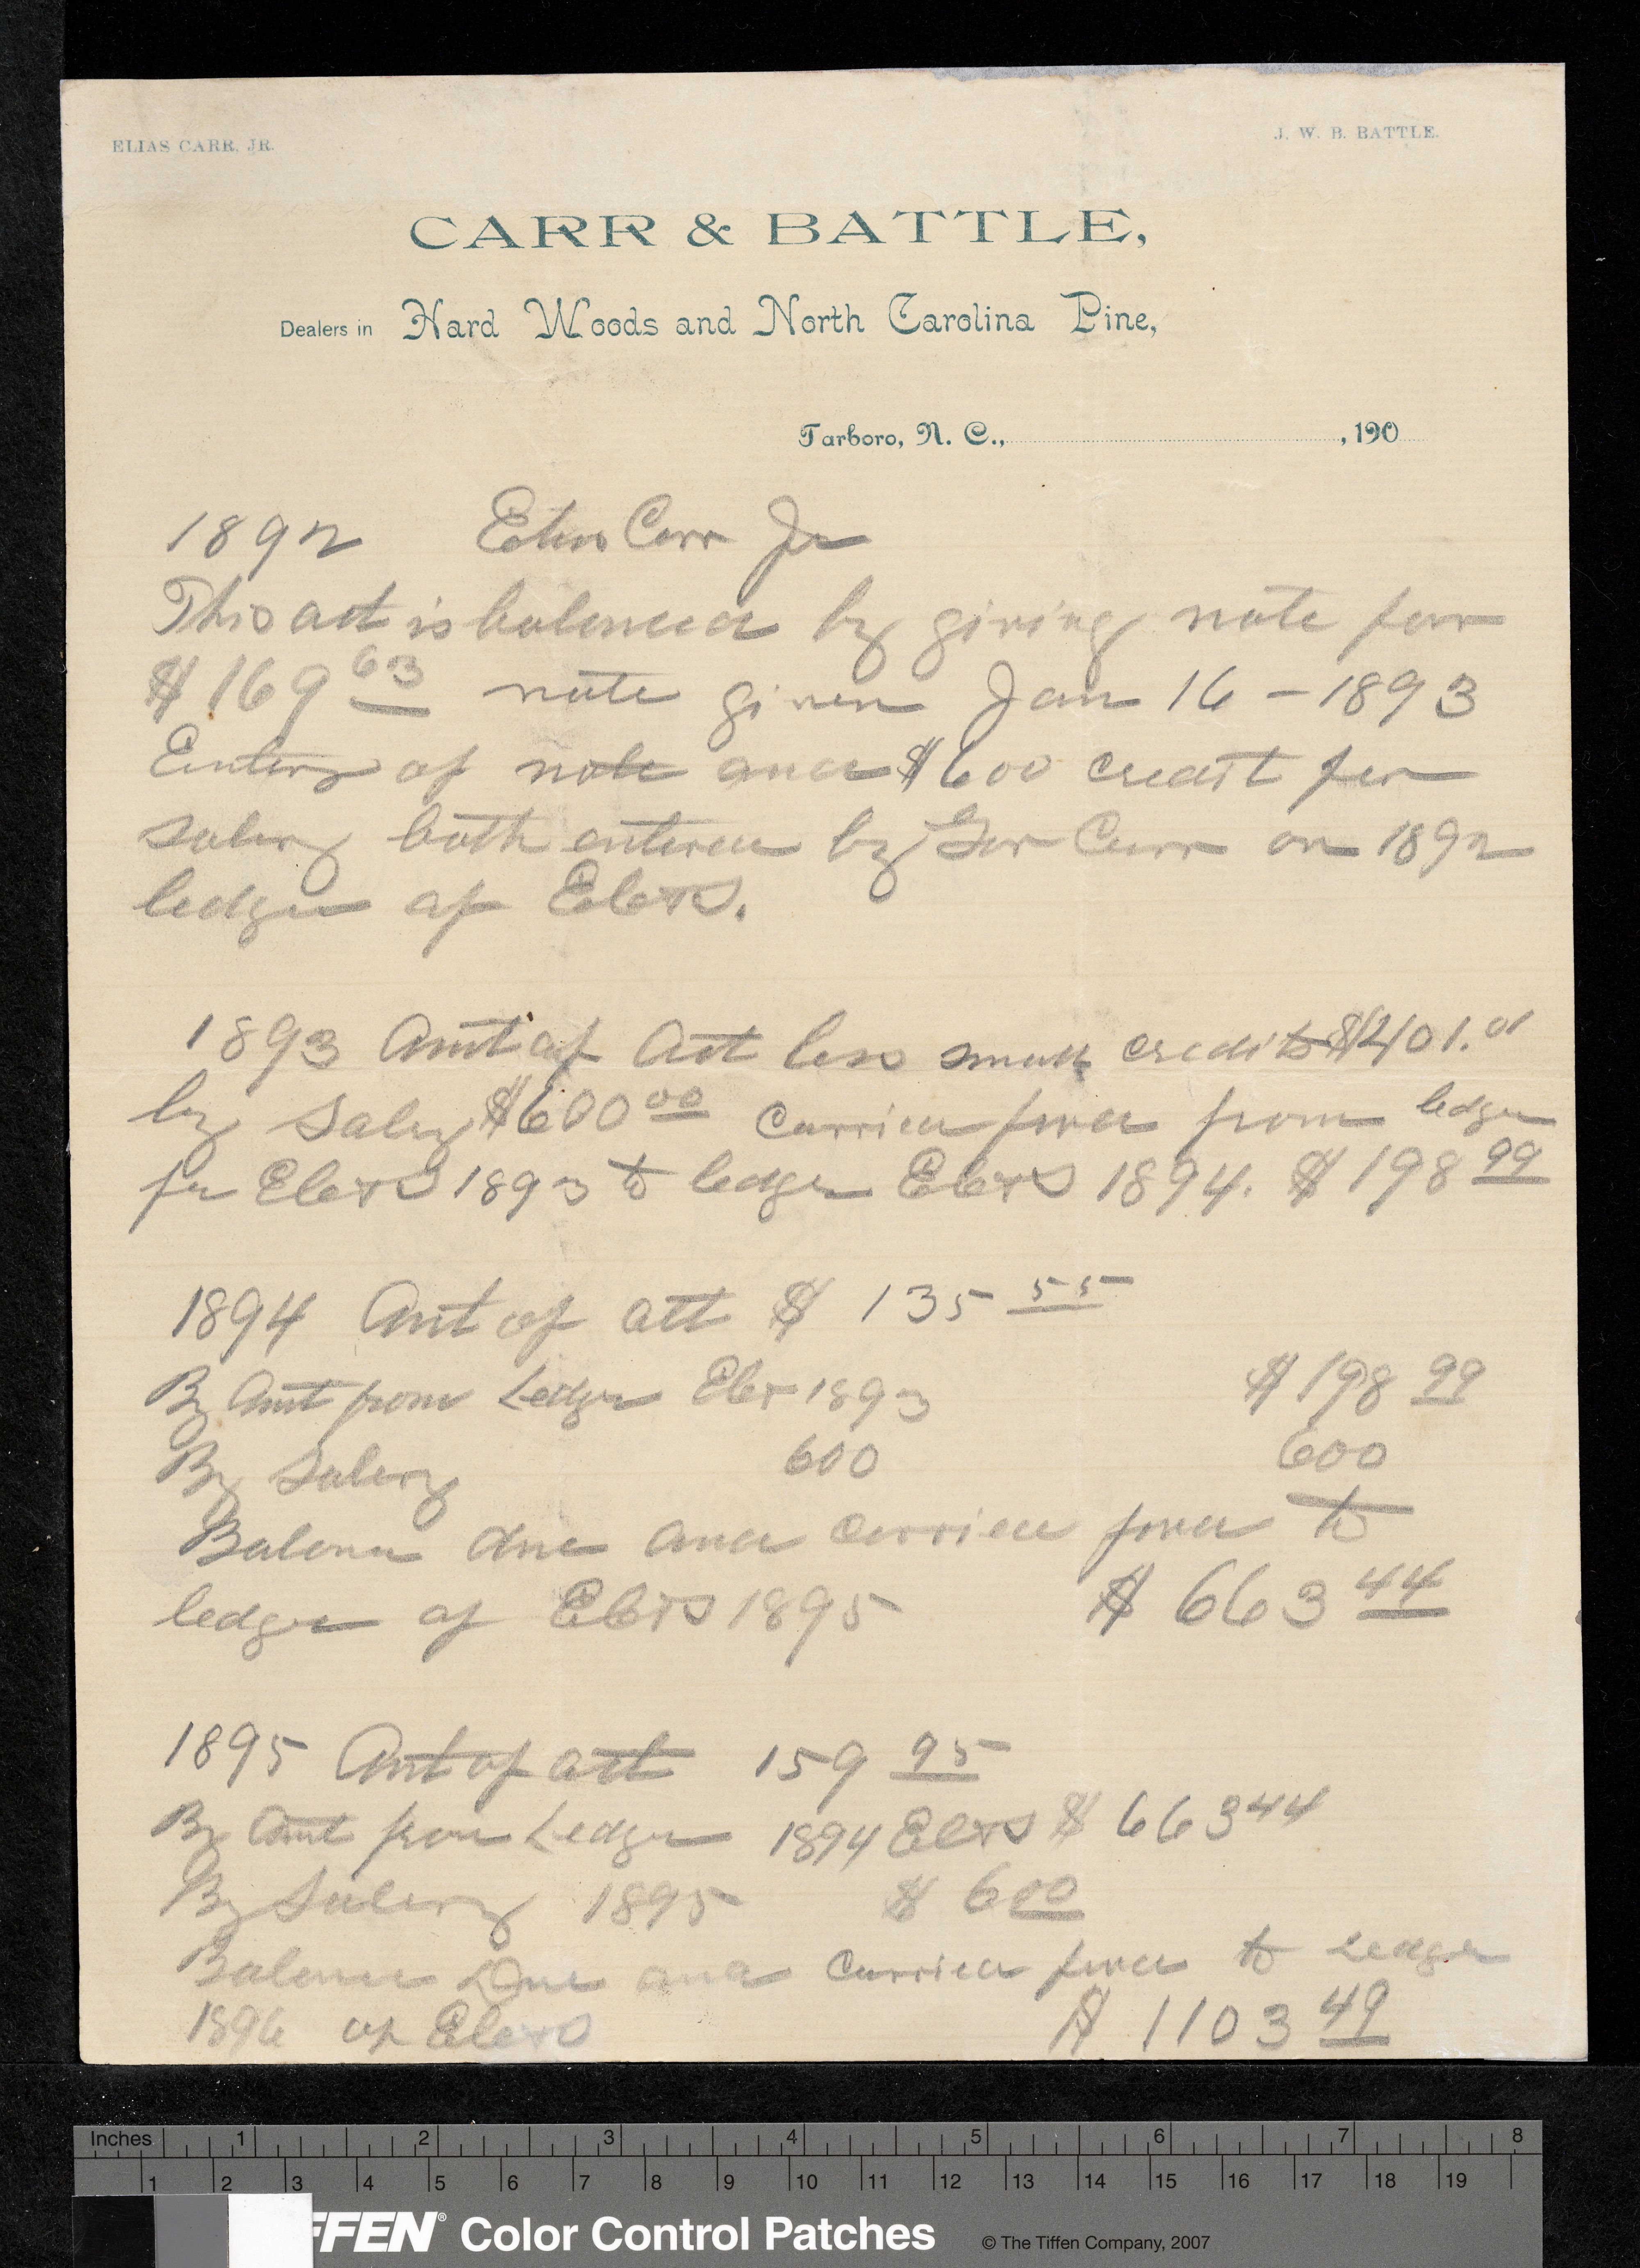 ELIAS CARR, JR.
J. W. B. BATTLE.
CARR & BATTLE,
Dealers in Hard Woods and North Carolina Pine,
Tarboro, N. C., , 190
1892 Elias Carr Jr
This act is balanced by giving note for
$169 63 note given Jan 16 - 1893
Entery of note and $600 credit for
salery both entered by Gov Carr on 1892
ledger of EC&S.
1893 Amt of Act less small credits $401.01
by Salery $600 00 carried forwd from ledger
for EC&S 1893 to ledger EC&S 1894. $198 99
1894 Amt of att $ 135 55
By Amt from Ledger 1893 $198 99
By Salery 600 600
Balance due and carried forwd to
ledger of EC&S 1895 $ 663 44
1895 Amt of att 159 95
By Amt from Ledger 1894 EC&S $ 663 44
By Salery 1895 $ 600
Balance Due and carried forwd to Ledger
1896 of EC&S $ 1103 49
Inches 1 2 3 4 5 6 7 8
1 2 3 4 5 6 7 8 9 10 11 12 13 14 15 16 17 18 19
FFEN® Color Control Patches © The Tiffen Company, 2007